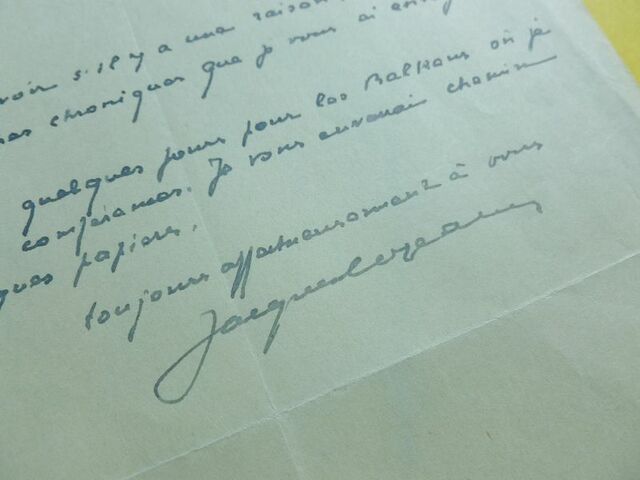 voir s'il y a une raison
mes chroniques que je vous ai envoy
quelques jours pour les Balkans où je
conférences. Je vous enverrai chemin
ques papiers.
toujours affectueusement à vous
Jacques